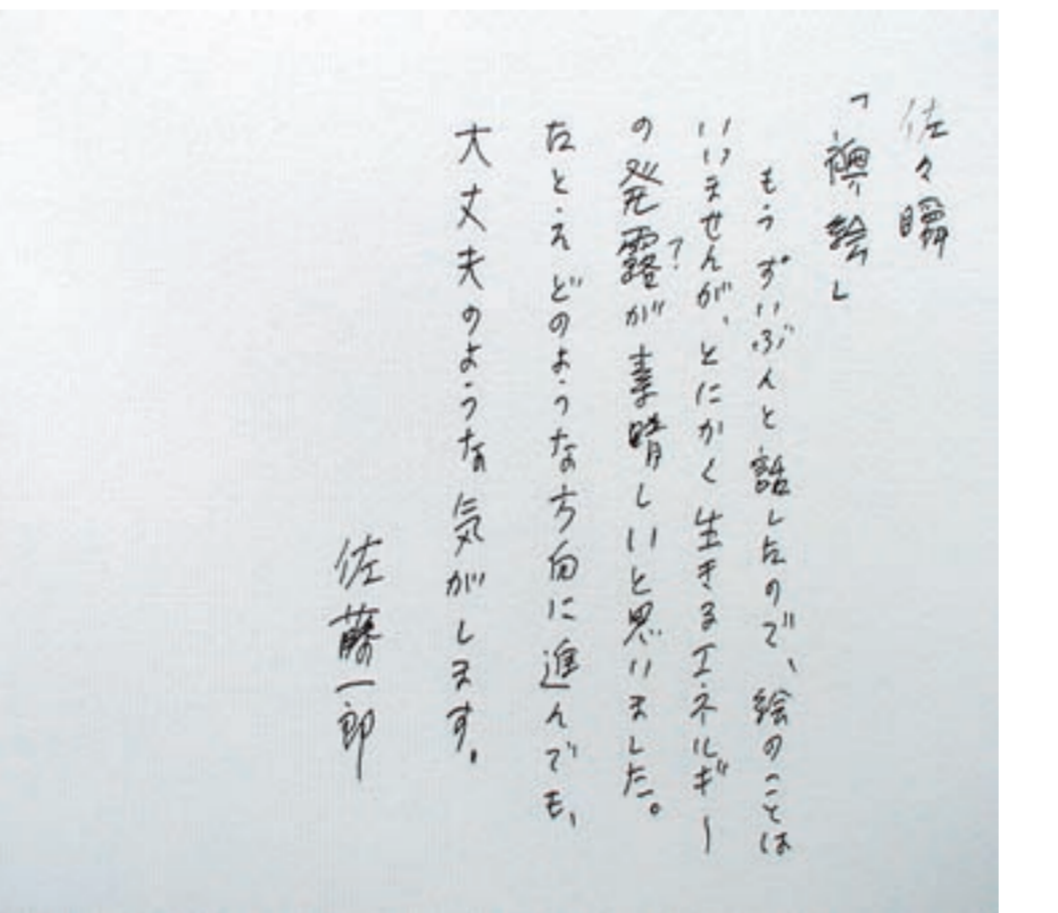 佐々瞬
「襖絵」
もうずいぶんと話したので、絵のことは
いいませんが、とにかく生きるエネルギー
の発露?が素晴しいと思いました。
たとえどのような方向に進んでも、
大丈夫のような気がします。
佐藤一郎